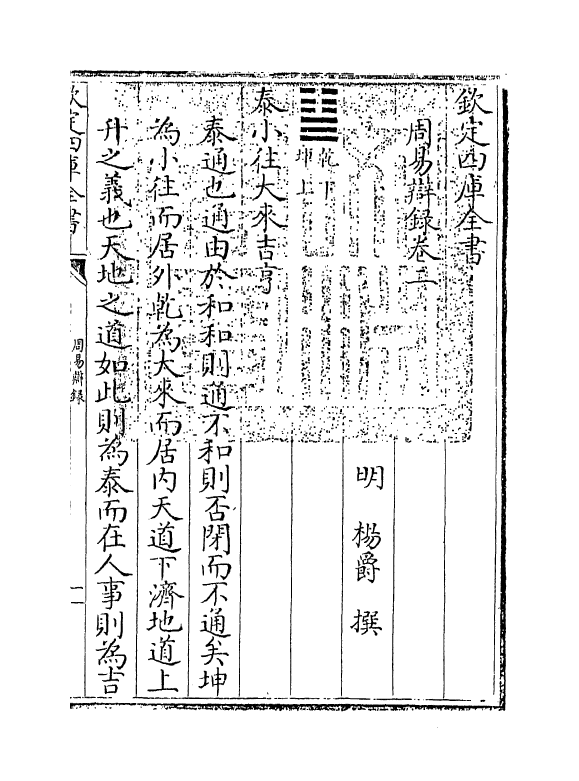 欽定四庫全書
周易辯録卷二
明 楊爵 撰
乾下
坤上
泰小往大來吉亨
泰通也通由於和和則通不和則否閉而不通矣坤
為小往而居外乾為大來而居内天道下濟地道上
升之義也天地之道如此則為泰而在人事則為吉
欽定四庫全書
周易辯録
一